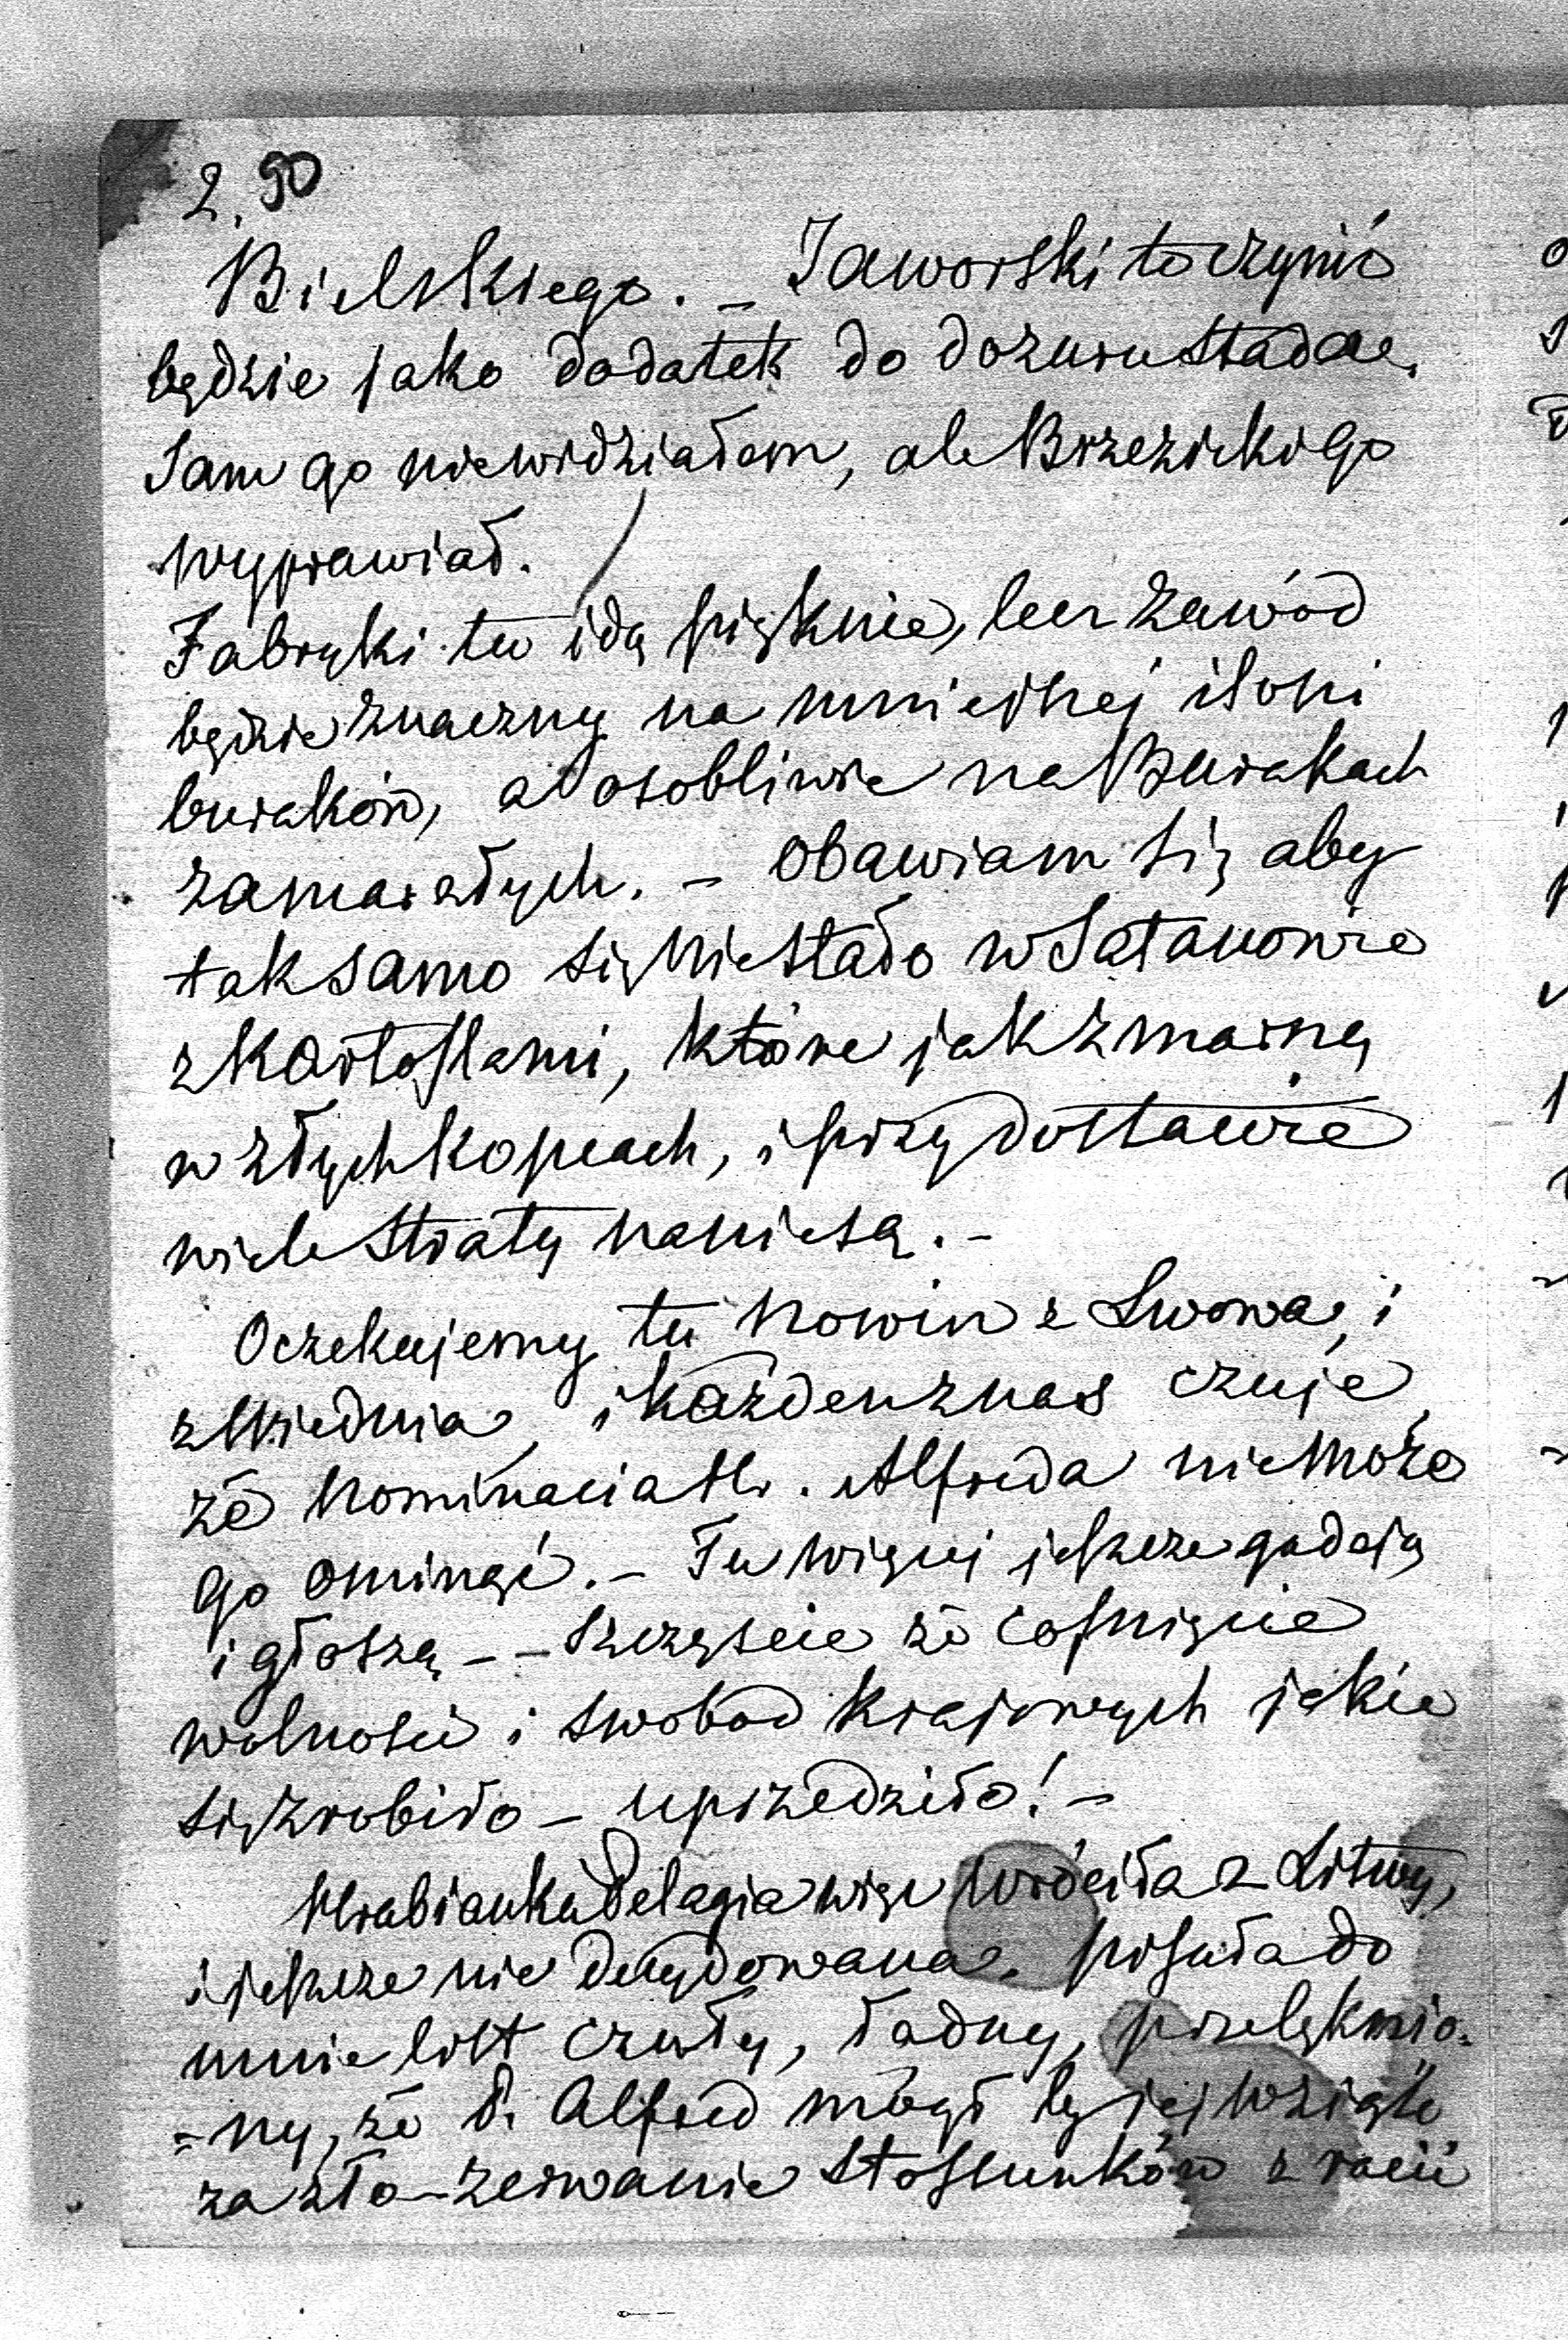 2. 90
Bielskiego. – Jaworski to czynić
będzie jako dodatek do dozuru stada.
Sam go niewidziałem, ale Brzezickiego
wyprawiał.
Fabryki tu idą pięknie, lecz zawód
będzie znaczny na mniejszej ilości
buraków, a osobliwie na Burakach
zamarzłych. – Obawiam się aby
tak samo się nie stało w Satanowie
z kartoflami, które jak zmarzną
w złych kopcach, i przy dostawie
wiele straty naniesą. –
Oczekujemy tu nowin z Lwowa, i
z Wiednia, i każden z nas czuje,
że nominacia Hr. Alfreda nie może
go ominąć. – Tu więcej jeszcze gadają
i głoszą – – szczęście że cofnięcie
wolności i swobod krajowych jakie
się zrobiło – uprzedziło! –
Hrabianka Pelagia więc wróciła z Litwy,
i jeszcze nie decydowana. pisała do
mnie list czuły, ładny, przelęknio=
=ny, że P. Alfred mógł by jej wziąść
za złe – zerwanie stosunków z racii